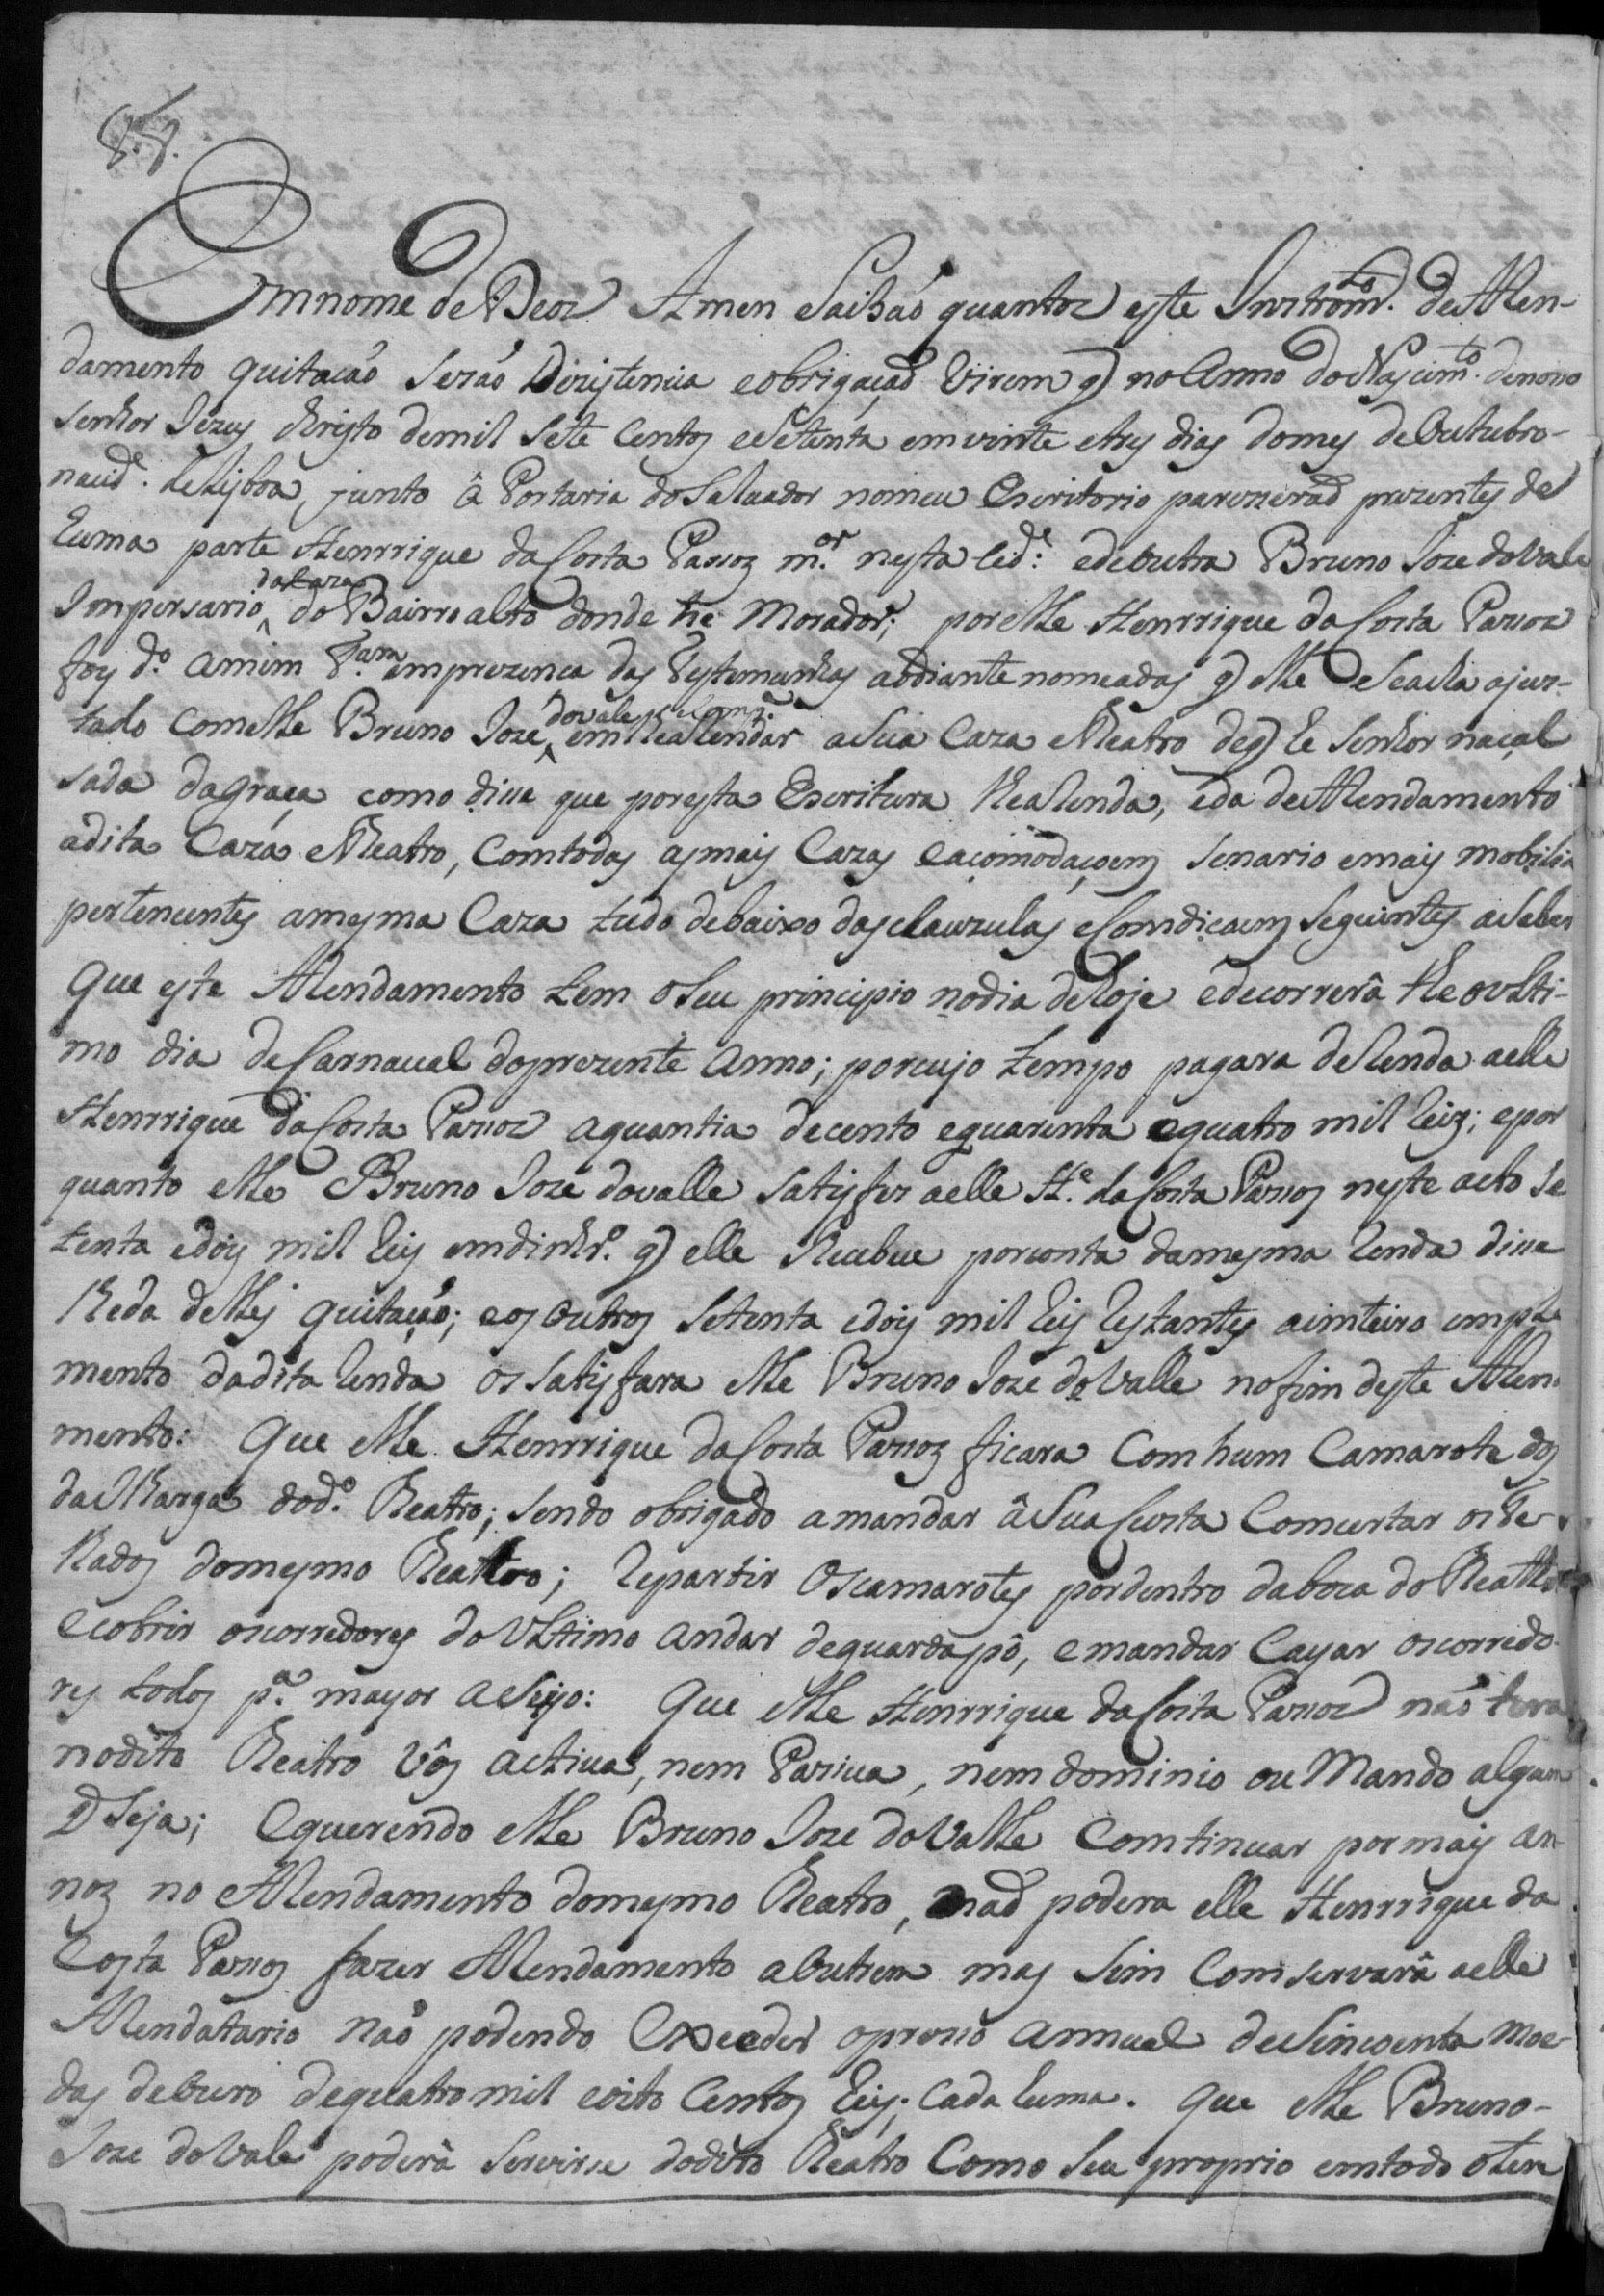 Em nome de Deos Amen Saibaõ quantos este Instrom.to de Arren-
damento quitacaõ Seraõ Dezistencia eobrigaçaõ Virem q no Anno do Nascim.to de noso
Senhor Jezus Christo demil Sete Centos eSetenta emvinte etres dias domes de Outubro-
nacid.e deLisboa, junto â Portaria do Salvador nomeu Escritorio pareseraõ prezentes de
huma parte Henrrique da Costa Passos m.or nesta Cid.e edeoutra Bruno Joze do Vale
Impersario da Caza do Bairro alto donde he Morador; por elle Henrrique da Costa Passos
foy d.o amim T.am emprezenca das Testemunhas addiante nomeadas q elle Se acha ajus-
tado Comelle Bruno Joze do vale em lhe aRendar aSua Caza eTheatro deq he Senhor nacal
sada dagraça como disse que poresta Escritura lhe aRenda, eda de ARendamento
adita Caza eTheatro, Comtodas asmais Cazas eacomodaçoens Senario emais mobilia
pertencentes amesma Caza tudo debaixo das clauzulas eComdicoens Seguintes aSaber
Que este ARendamento tem oSeu principio nodia deHoje edecorrerâ the oulti-
mo dia de Carnaval doprezente Anno; porcujo tempo pagara deRenda aelle
Henrrique da Costa Passos aquantia decento equarenta equatro mil Reis; epor
quanto elle Bruno Joze dovalle Satisfes aelle H.e da Costa Passos neste acto Se
tenta edois mil Reis emdinhr.o q elle Recebeu porconta damesma Renda disse
lheda delles quitaçaõ; eos outros Setenta edois mil Reis Restantes aimteiro comple
mento dadita Renda os Satisfara elle Bruno Joze do Valle nofim deste ARen
mento: Que elle Henrrique da Costa Passos ficara Com hum Camarote dos
da Marga dod.o Theatro; Sendo obrigado amandar âSua Custa Comcertar os te-
lhados domesmo Theatro; Repartir Os camarotes pordentro daboca do Theatro
ecobrir oscorredores do Ultimo andar deguardapô, emandar Cayar oscorredo-
res todos p.a mayor aSeyo: Que elle Henrrique da Costa Passos naõ tera
nodito Theatro Vôs activa, nem Pasiva, nem dominio ou Mando algum
q Seja; Equerendo elle Bruno Joze do Valle Comtinuar por mais an-
nos no ARendamento domesmo Theatro, naõ podera elle Henrrique da
Costa Passos fazer ARendamento aOutrem mas Sim Comservarâ aelle
ARendatario naõ podendo Exceder opreso annual deSincoenta Moe-
das deOuro dequatro mil eoito Centos Reis; Cada huma. Que elle Bruno-
Joze do Vale poderâ Servirse dodito Theatro Como Seu proprio emtodo otem